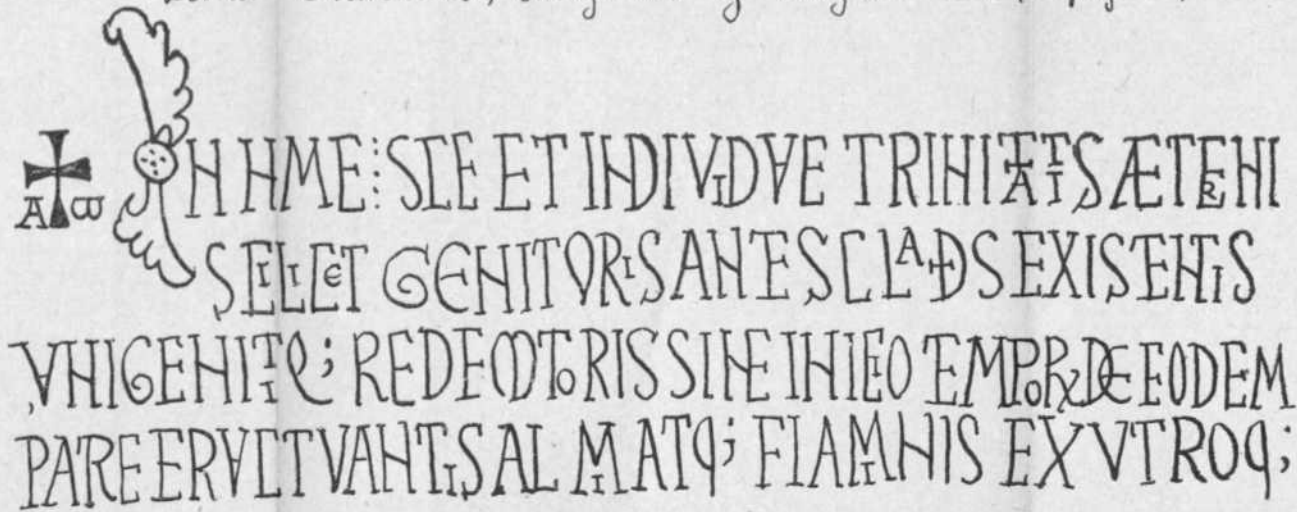 A ω IN NME: SCE ET INDIVIDVE TRINITATIS ÆTERNI
SCILICET GENITORIS ANTE SCLA DS EXISTENTIS
VNIGENITIQ; REDEMTORIS SINE INITIO TEMPORꝜ DE EODEM
PATRE ERVCTVANTIS ALMI ATQ; FLAMINIS EX VTROQ;